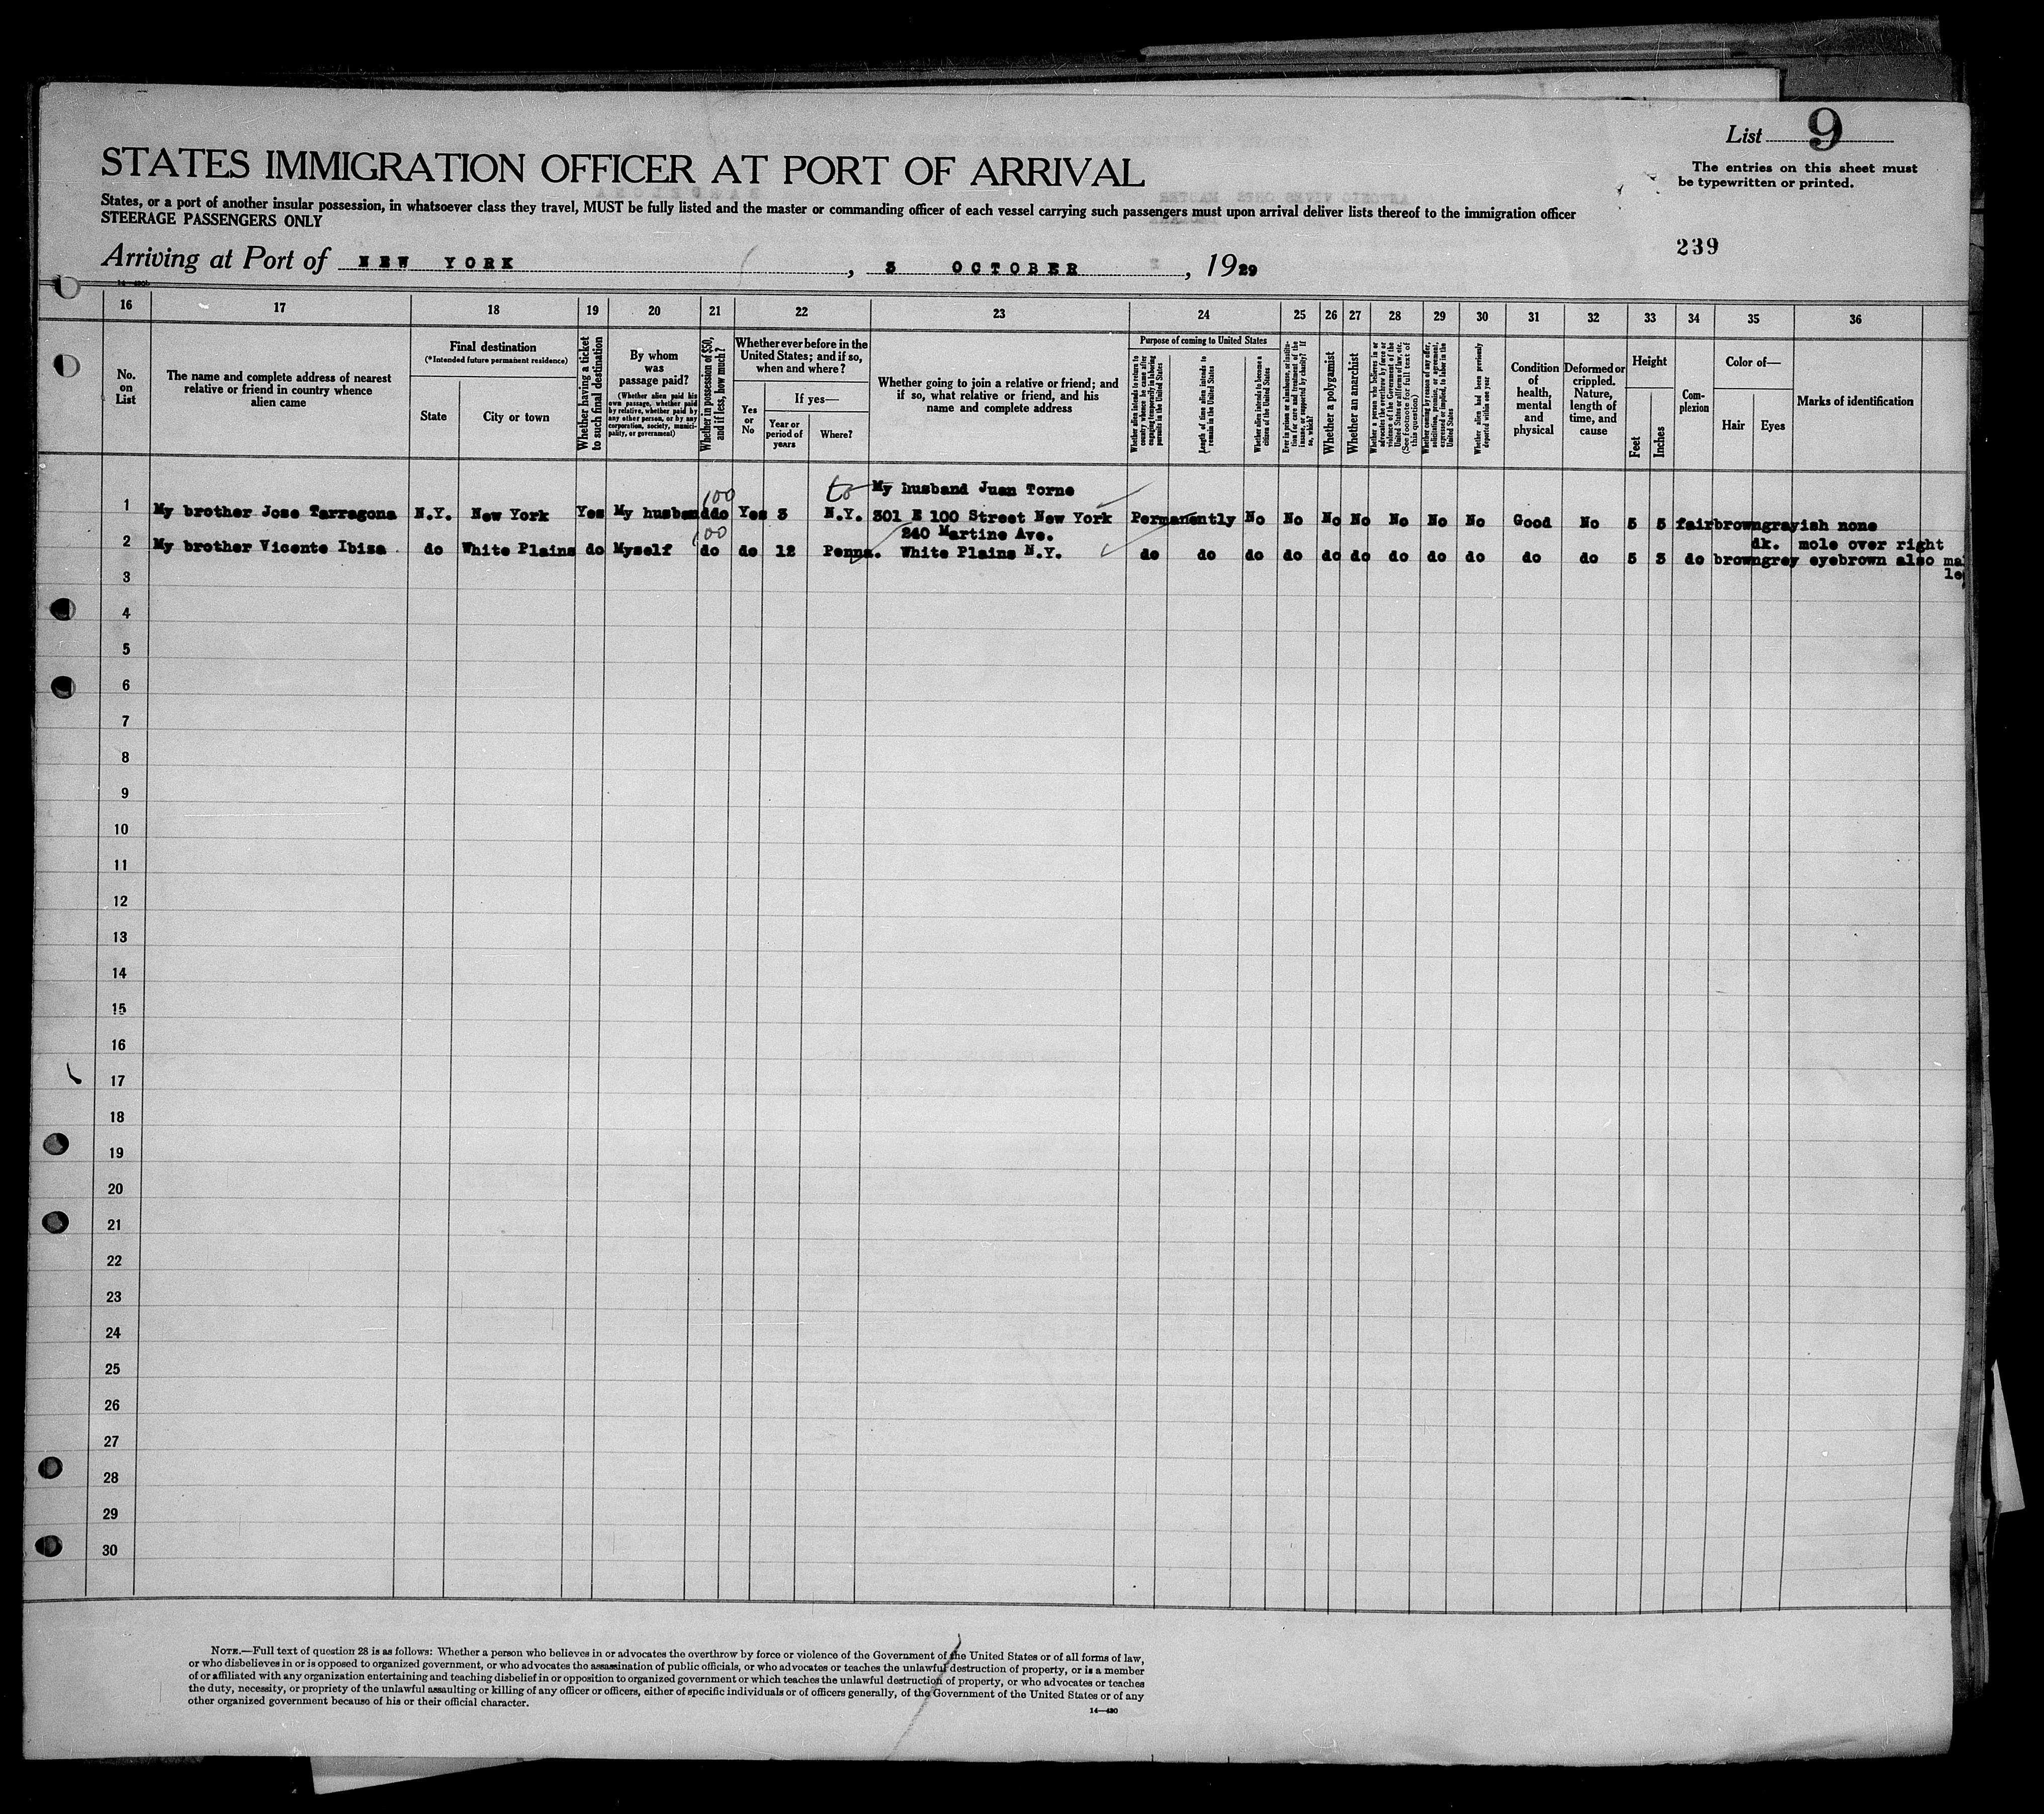 List 9
The entries on this sheet must
be typewritten or printed.
STATES IMMIGRATION OFFICER AT PORT OF ARRIVAL
States, or a port of another insular possession, in whatsoever class they travel, MUST be fully listed and the master or commanding officer of each vessel carrying such passengers must upon arrival deliver lists thereof to the immigration officer
STEERAGE PASSENGERS ONLY
239
Arriving at Port of NEW YORK, 3 OCTOBER, 1929
16 17 18 19 20 21 22 23 24 25 26 27 28 29 30 31 32 33 34 35 36
No.
on
List
The name and complete address of nearest
relative or friend in country whence
alien came
Final destination
(*Intended future permanent residence)
State
City or town
Whether having a ticket
to such final destination
By whom
was
passage paid?
(Whether alien paid his
own passage, whether paid
by relative, whether paid by
any other person, or by any
corporation, society, munici-
pality, or government)
Whether in possession of $50,
and if less, how much?
Whether ever before in the
United States; and if so,
when and where?
Yes
or
No
If yes—
Year or
period of
years
Where?
Whether going to join a relative or friend; and
if so, what relative or friend, and his
name and complete address
Purpose of coming to United States
Whether alien intends to return to
country whence he came after
engaging temporarily in laboring
pursuits in the United States
Length of time alien intends to
remain in the United States
Whether alien intends to become a
citizen of the United States
Ever in prison or almshouse, or institu-
tion for care and treatment of the
insane, or supported by charity? If
so, which?
Whether a polygamist
Whether an anarchist
Whether a person who believes in or
advocates the overthrow by force or
violence of the Government of the
United States or all forms of law, etc.
(See footnote for full text of
this question)
Whether coming by reason of any offer,
solicitation, promise, or agreement,
expressed or implied, to labor in the
United States
Whether alien had been previously
deported within one year
Condition
of
health,
mental
and
physical
Deformed or
crippled.
Nature,
length of
time, and
cause
Height
Feet
Inches
Com-
plexion
Color of—
Hair
Eyes
Marks of identification
100 to My husband Juan Torne
1 My brother Jose Tarragona N.Y. New York Yes My husband do Yes 3 N.Y. 301 E 100 Street New York Permanently No No No No No No No Good No 5 5 fair brown grayish none
100 240 Martine Ave. dk. mole over right
2 My brother Vicente Ibiza do White Plains do Myself do do 12 Penna. White Plains N.Y. do do do do do do do do do do do 5 3 do brown grey eyebrown also
3
4
5
6
7
8
9
10
11
12
13
14
15
16
17
18
19
20
21
22
23
24
25
26
27
28
29
30
NOTE.—Full text of question 28 is as follows: Whether a person who believes in or advocates the overthrow by force or violence of the Government of the United States or of all forms of law,
or who disbelieves in or is opposed to organized government, or who advocates the assassination of public officials, or who advocates or teaches the unlawful destruction of property, or is a member
of or affiliated with any organization entertaining and teaching disbelief in or opposition to organized government or which teaches the unlawful destruction of property, or who advocates or teaches
the duty, necessity, or propriety of the unlawful assaulting or killing of any officer or officers, either of specific individuals or of officers generally, of the Government of the United States or of any
other organized government because of his or their official character.
14—430